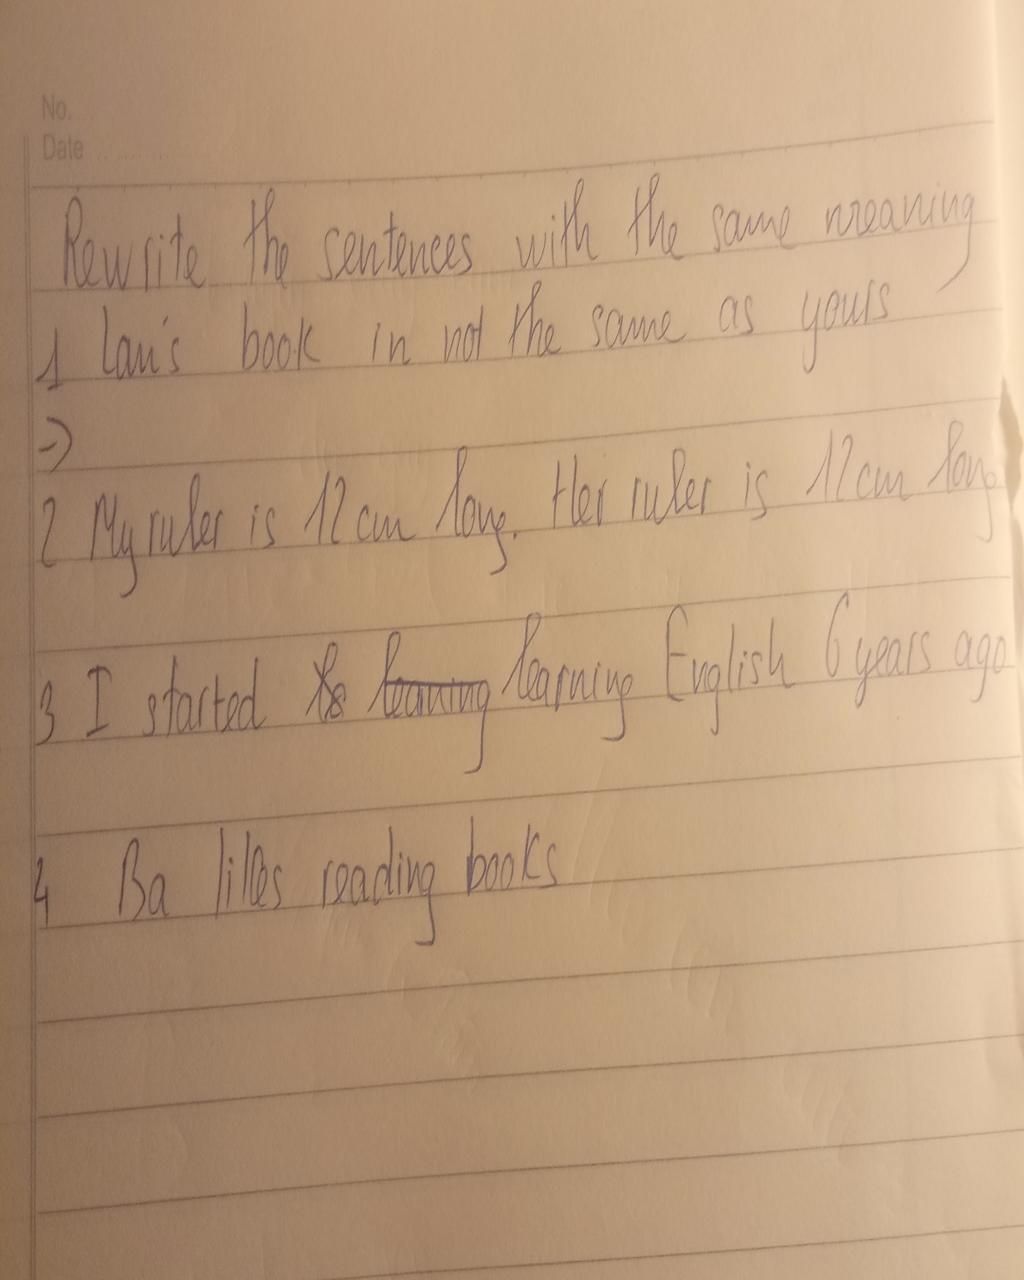 No.
Date
Rewrite the sentences with the same meaning
1 Lan's book in not the same as yours
=)
2 My ruler is 12 cm long. Her ruler is 12 cm long
3 I started to learning learning English 6 years ago
4 Ba likes reading books